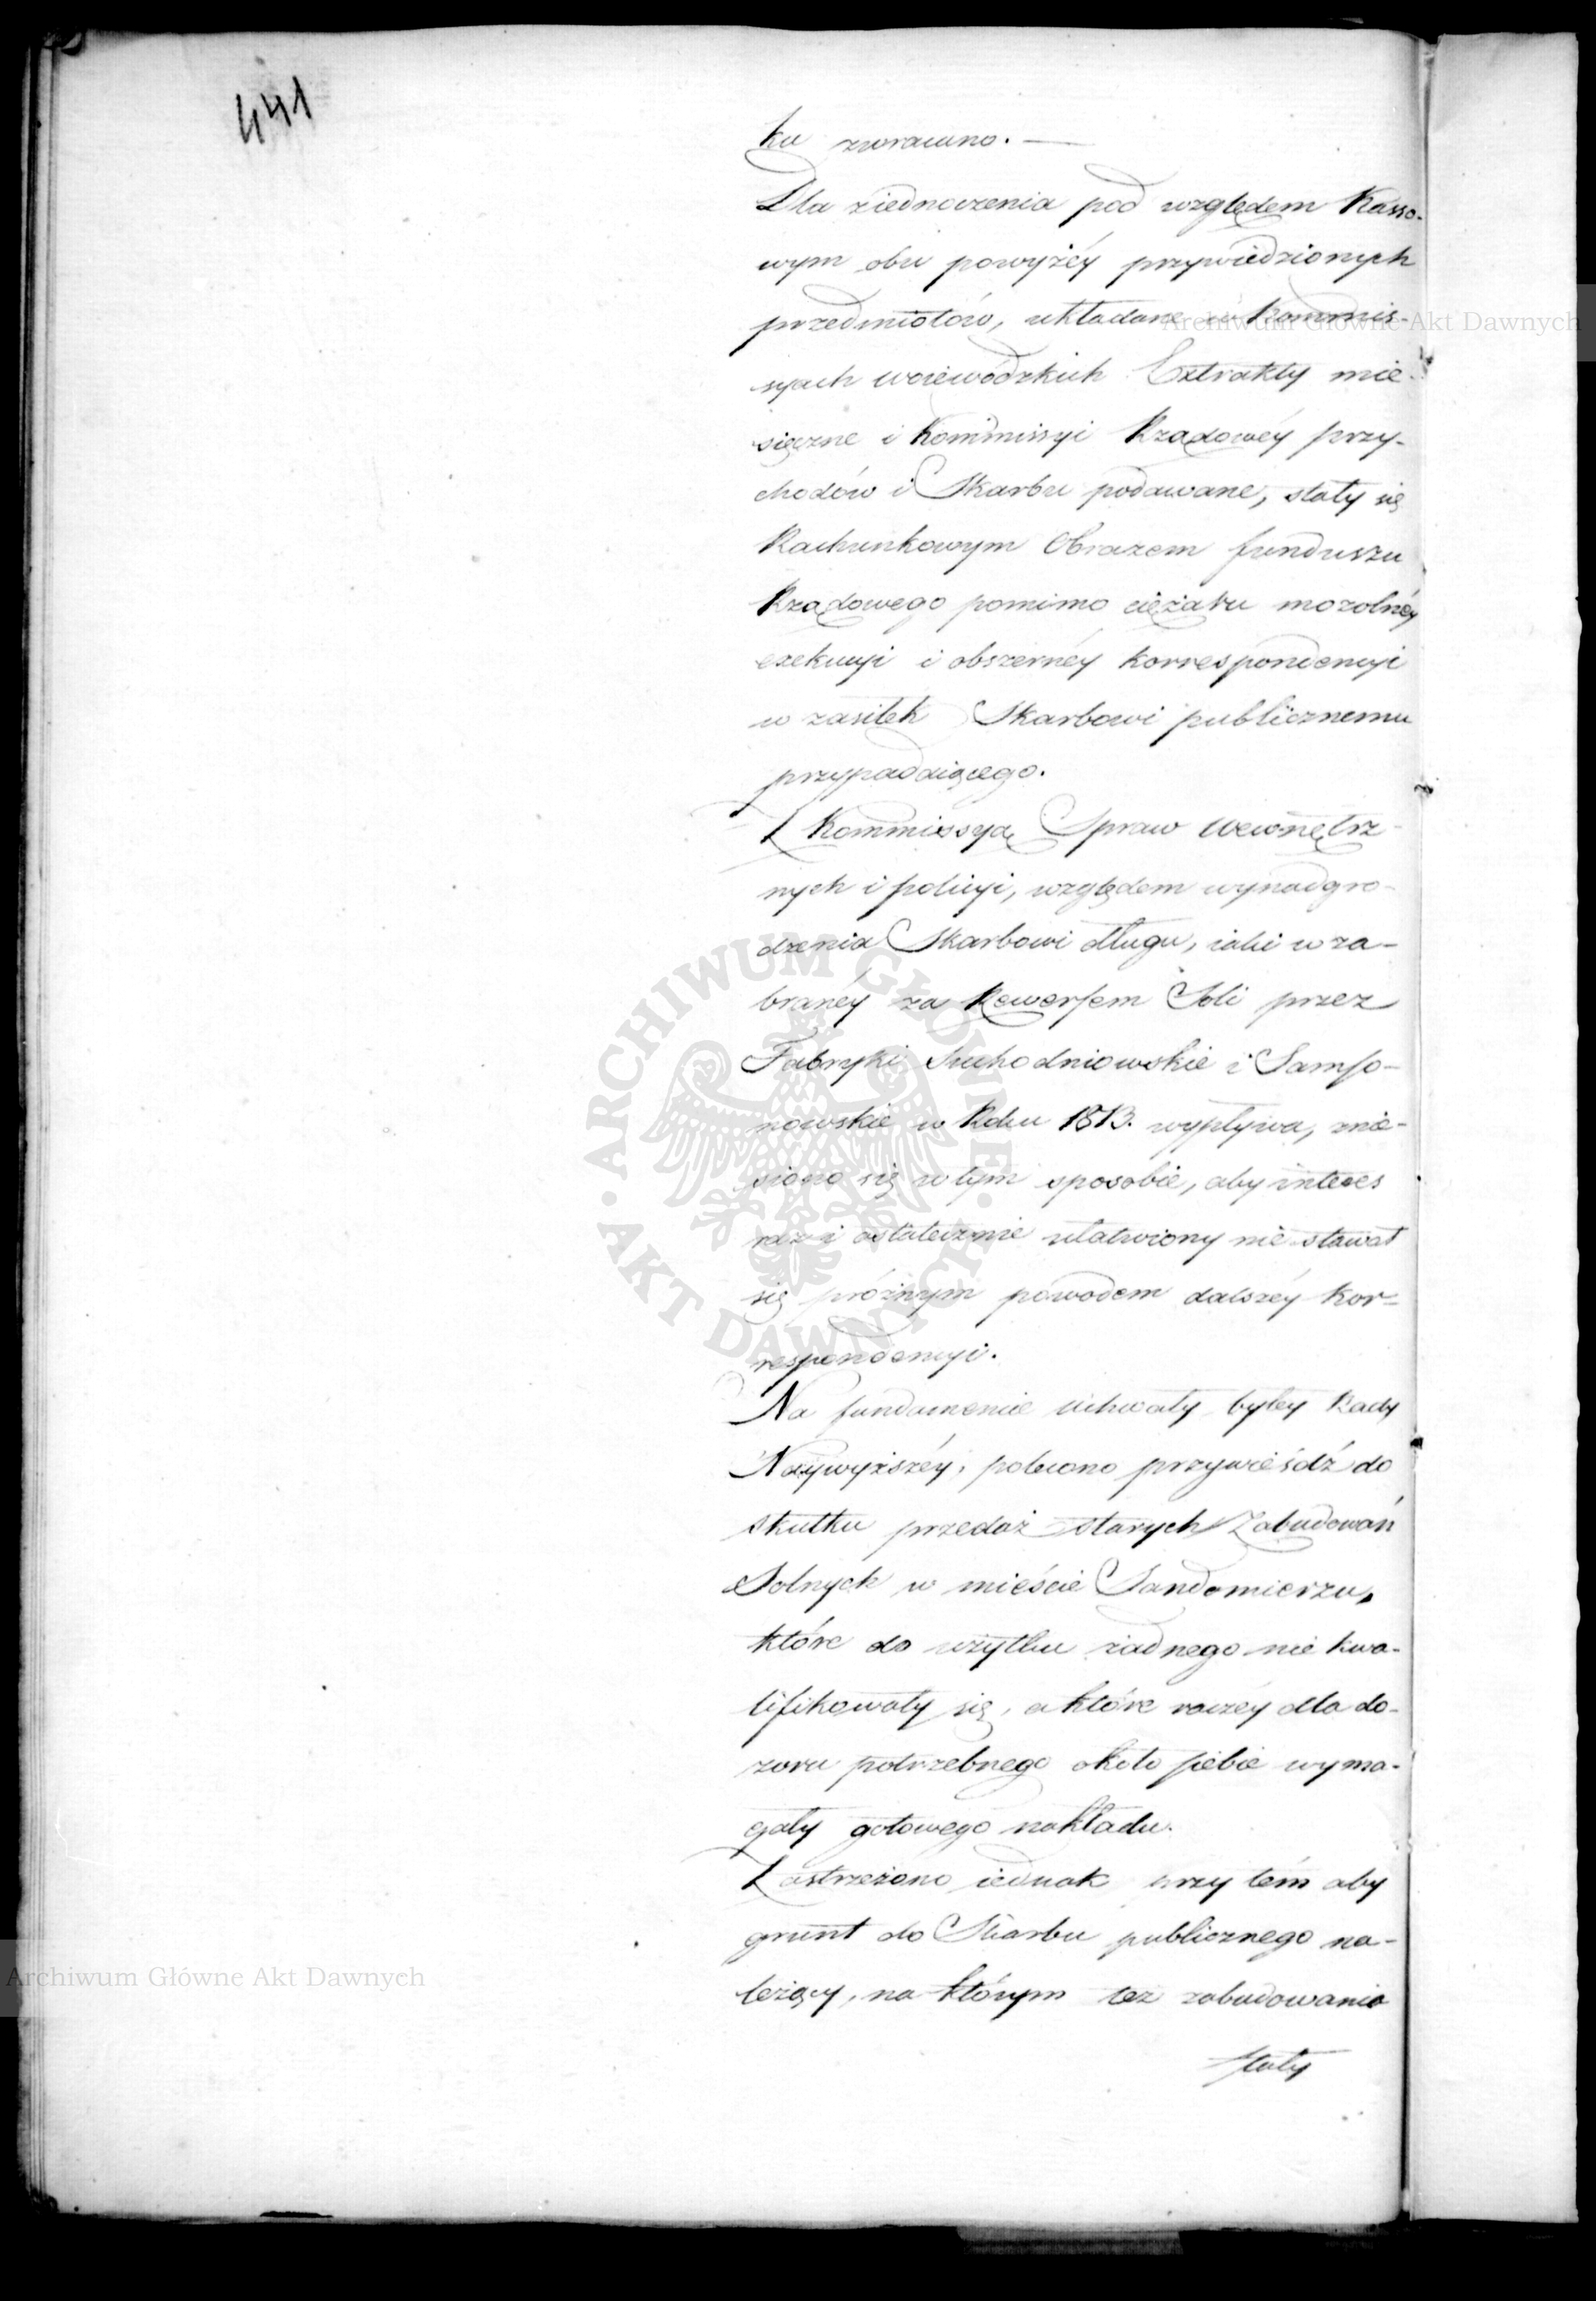 441
ku zwracano. —
Dla ziednoczenia pod względem Kasso-
wym obu powyżéy przywiedzionych
przedmiotów, układane w Kommis-
syach woiewódzkich Extrakty mie-
sięczne i Kommissyi Rządowéy przy-
chodów i Skarbu podawane, stały się
Rachunkowym Obrazem funduszu
Rządowego pomimo ciężaru mozolnéy
exekucyi i obszernéy korrespondencyi
w zasiłek Skarbowi publicznemu
przypadaiącego.
Z Kommissyą Spraw Wewnętrz-
nych i policyi, względem wynadgro-
dzenia Skarbowi długu, iaki w za-
branéy za Rewersem Soli przez
Fabryki Suchodniowskie i Samso-
nowskie w Roku 1813. wypływa, znie-
siono się w tym sposobie, aby interes
raz i ostatecznie ułatwiony nie stawał
się próżnym powodem dalszéy kor-
respondencyi.
Na fundamencie Uchwały byłey Rady
Naywyższéy, polecono przywieśdź do
skutku przedaż starych Zabudowań
Solnych w mieście Sandomierzu,
które do użytku żadnego nie kwa-
lifikowały się, a które raczéy dla do-
zoru potrzebnego około siebie wyma-
gały gotowego nakładu.
Zastrzeżono iednak przy tém aby
grunt do Skarbu publicznego na-
leżący, na którym też zabudowania
stały
Archiwum Główne Akt Dawnych
Archiwum Główne Akt Dawnych
ARCHIWUM GŁÓWNE · AKT DAWNYCH ·